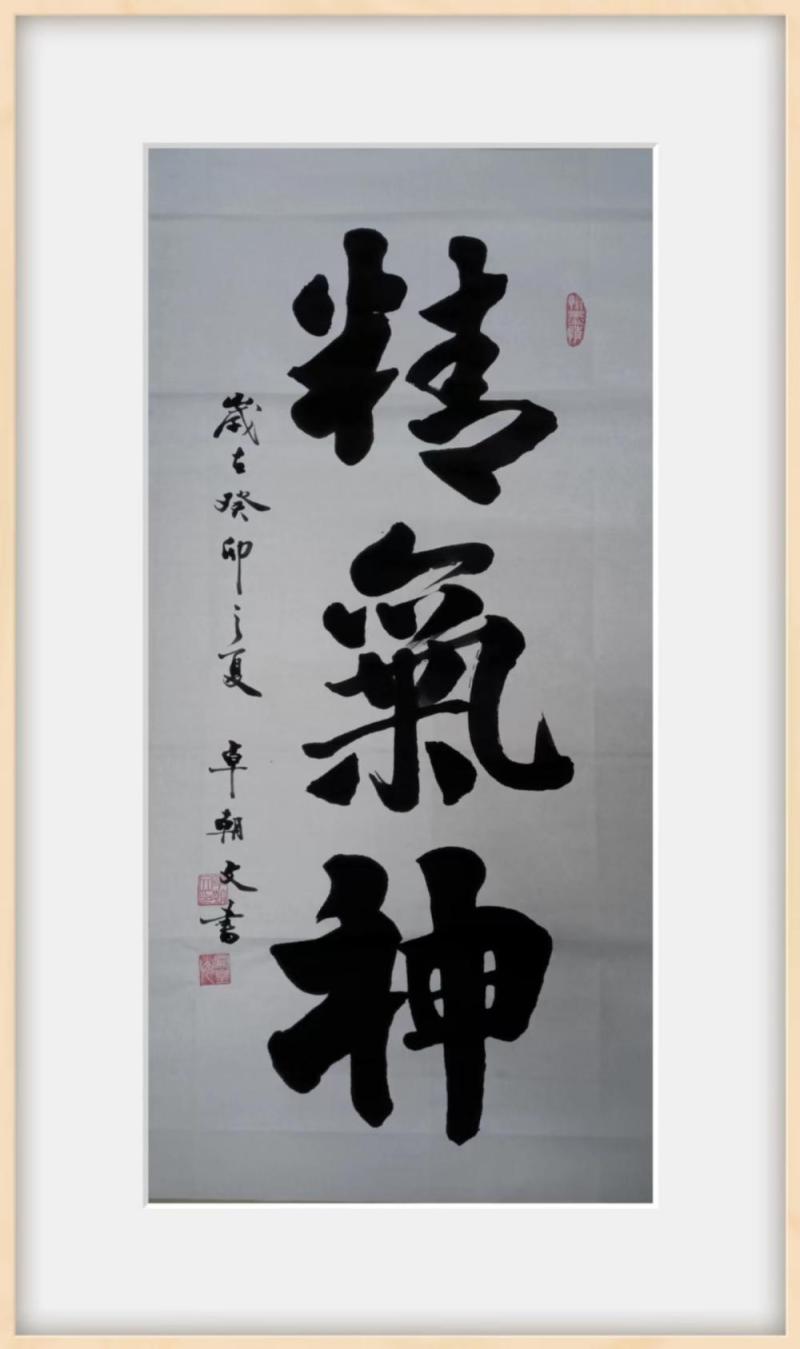 精氣神
歲在癸卯之夏 卓朝文書